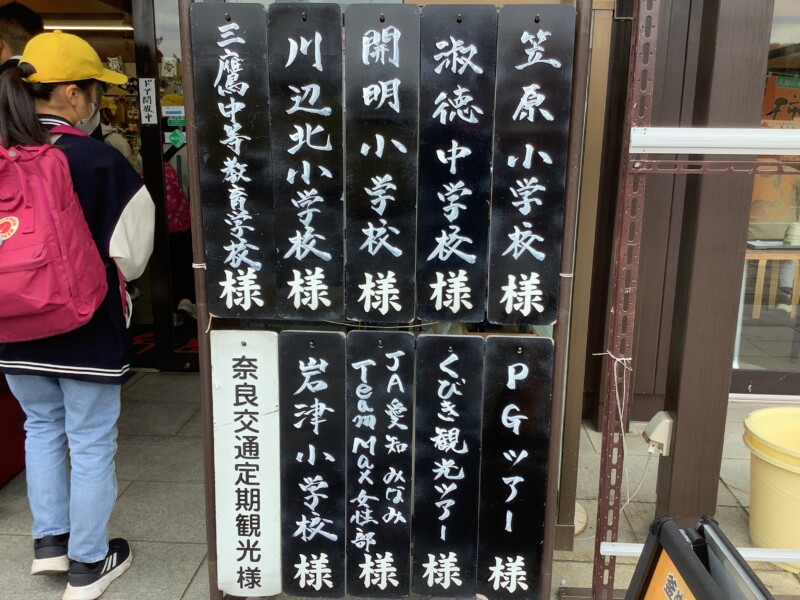 笠原小学校様
淑徳中学校様
開明小学校様
川辺北小学校様
三鷹中等教育学校様
PGツアー様
くびき観光ツアー様
JA愛知みなみ
Team Max女性部様
岩津小学校様
奈良交通定期観光様
ドア開放中